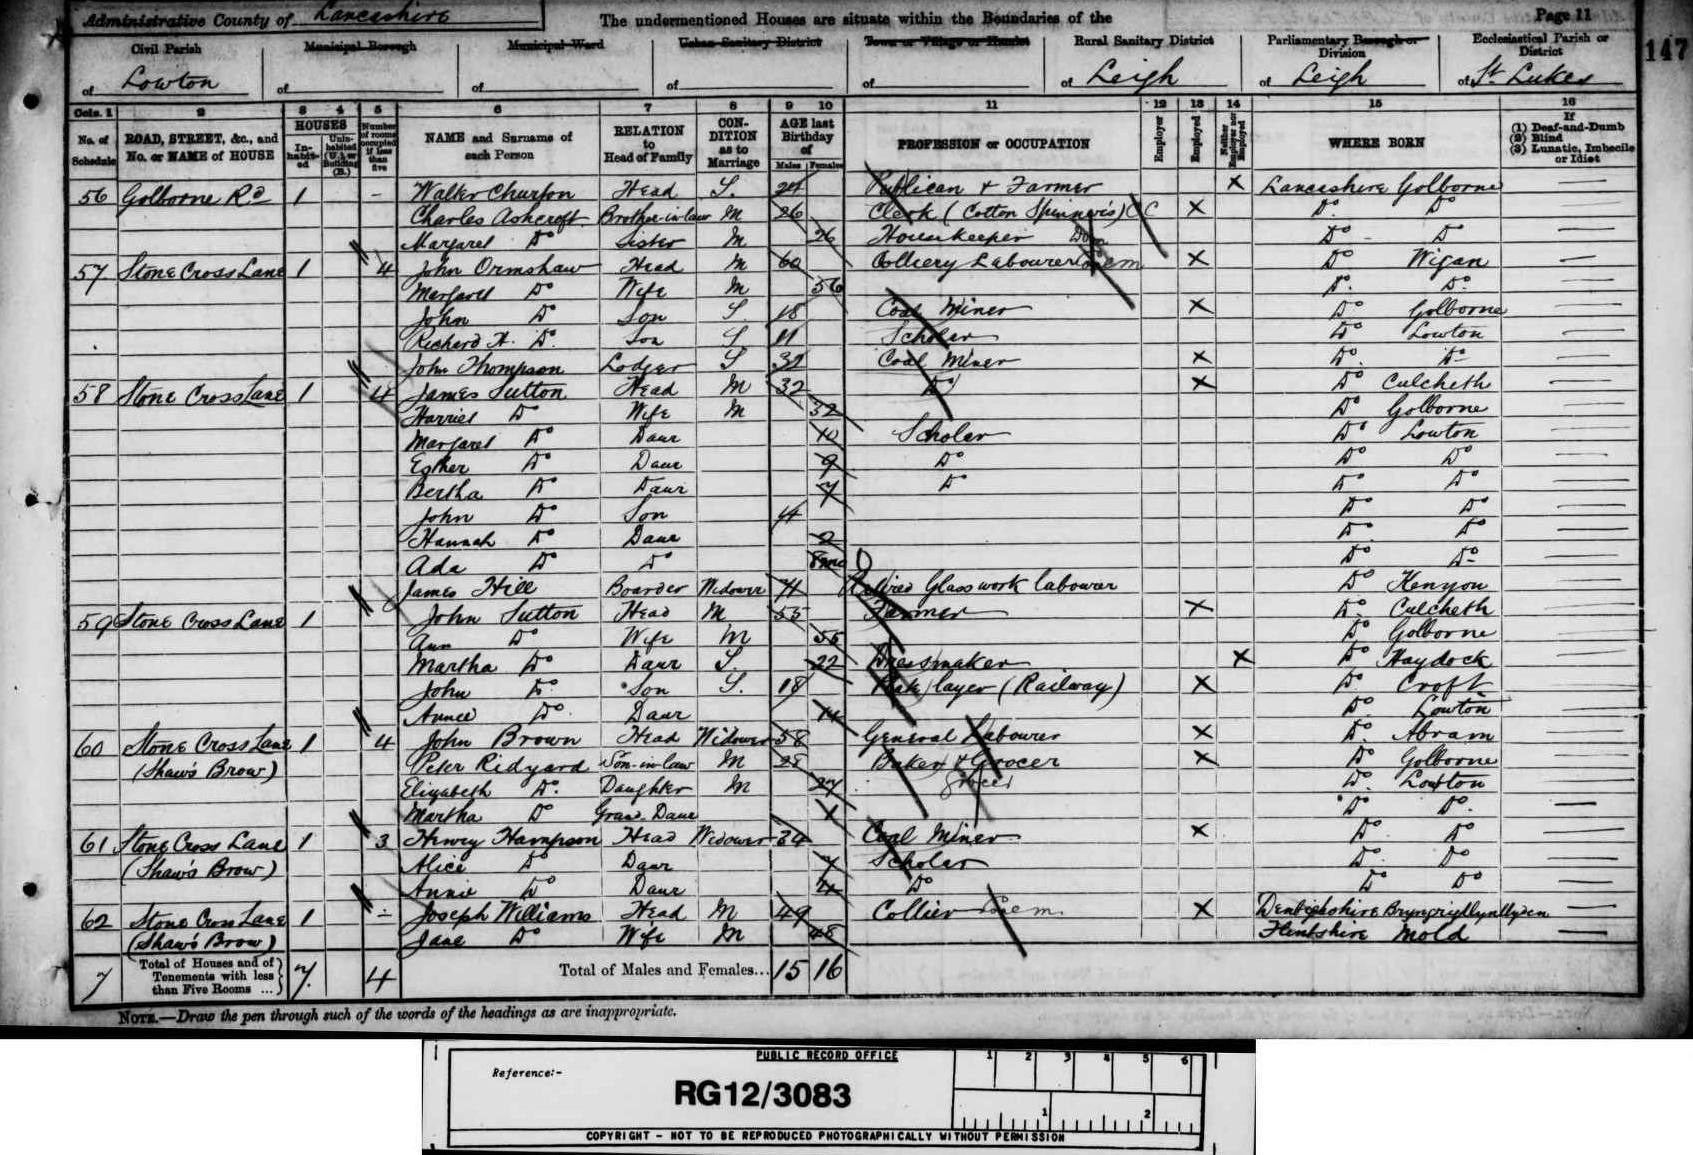 Administrative County of Lancashire The undermentioned Houses are situate within the Boundaries of the Page 11
147
Civil Parish of Lowton Municipal Borough of Municipal Ward of Urban Sanitary District of Town or Village or Hamlet of Rural Sanitary District of Leigh Parliamentary Borough or Division of Leigh Ecclesiastical Parish or District of St Lukes
Cols. 1 2 3 4 5 6 7 8 9 10 11 12 13 14 15 16
No. of Schedule ROAD, STREET, &c., and No. or NAME of HOUSE HOUSES Inhabited Uninhabited (U.) or Building (B.) Number of rooms occupied if less than five NAME and Surname of each Person RELATION to Head of Family CONDITION as to Marriage AGE last Birthday of Males Females PROFESSION or OCCUPATION Employer Employed Neither Employer nor Employed WHERE BORN If (1) Deaf-and-Dumb (2) Blind (3) Lunatic, Imbecile or Idiot
56 Golborne Rd 1 - Walter Head S. 24 Publican & Farmer X Lancashire Golborne
Charles Ashcroft Brother-in-law M 26 Clerk (Cotton Spinner's) CC X Do Do
Margaret Do Sister M 26 Housekeeper Dom Do Do
57 Stone Cross Lane 1 4 John Ormshaw Head M 60 Colliery Labourer X Do Wigan
Margaret Do Wife M 56 Do Do
John Do Son S 18 Coal Miner X Do Golborne
Richard H. Do Son S 11 Scholar Do Lowton
John Thompson Lodger S 32 Coal Miner X Do Do
58 Stone Cross Lane 1 4 James Sutton Head M 32 Do X Do Culcheth
Harriet Do Wife M 32 Do Golborne
Margaret Do Daur 10 Scholar Do Lowton
Esther Do Daur 9 Do Do Do
Bertha Do Daur 7 Do Do Do
John Do Son 4 Do Do
Hannah Do Daur 2 Do Do
Ada Do Do 8mo Do Do
James Hill Boarder Widower 71 Retired Glass work labourer Do Kenyon
59 Stone Cross Lane 1 John Sutton Head M 55 Farmer X Do Culcheth
Ann Do Wife M 55 Do Golborne
Martha Do Daur S. 22 Dressmaker X Do Haydock
John Do Son S. 18 Plate layer (Railway) X Do Croft
Annie Do Daur 14 Do Lowton
60 Stone Cross Lane 1 4 John Brown Head Widower 58 General Labourer X Do Abram
(Shaw's Brow) Peter Ridyard Son-in-law M 28 Baker & Grocer X Do Golborne
Elizabeth Do Daughter M 27 Grocer Do Lowton
Martha Do Gran. Daur 1 Do Do
61 Stone Cross Lane 1 3 Henry Hampson Head Widower 34 Coal Miner X Do Do
(Shaw's Brow) Alice Do Daur 7 Scholar Do Do
Annie Do Daur 4 Do Do Do
62 Stone Cross Lane 1 - Joseph Williams Head M 49 Collier X Denbighshire
(Shaw's Brow) Jane Do Wife M 48 Flintshire Mold
7 Total of Houses and of Tenements with less than Five Rooms ... 7 4 Total of Males and Females... 15 16
NOTE.—Draw the pen through such of the words of the headings as are inappropriate.
PUBLIC RECORD OFFICE 1 2 3 4 5 6
Reference:-
RG12/3083
1 2
COPYRIGHT - NOT TO BE REPRODUCED PHOTOGRAPHICALLY WITHOUT PERMISSION